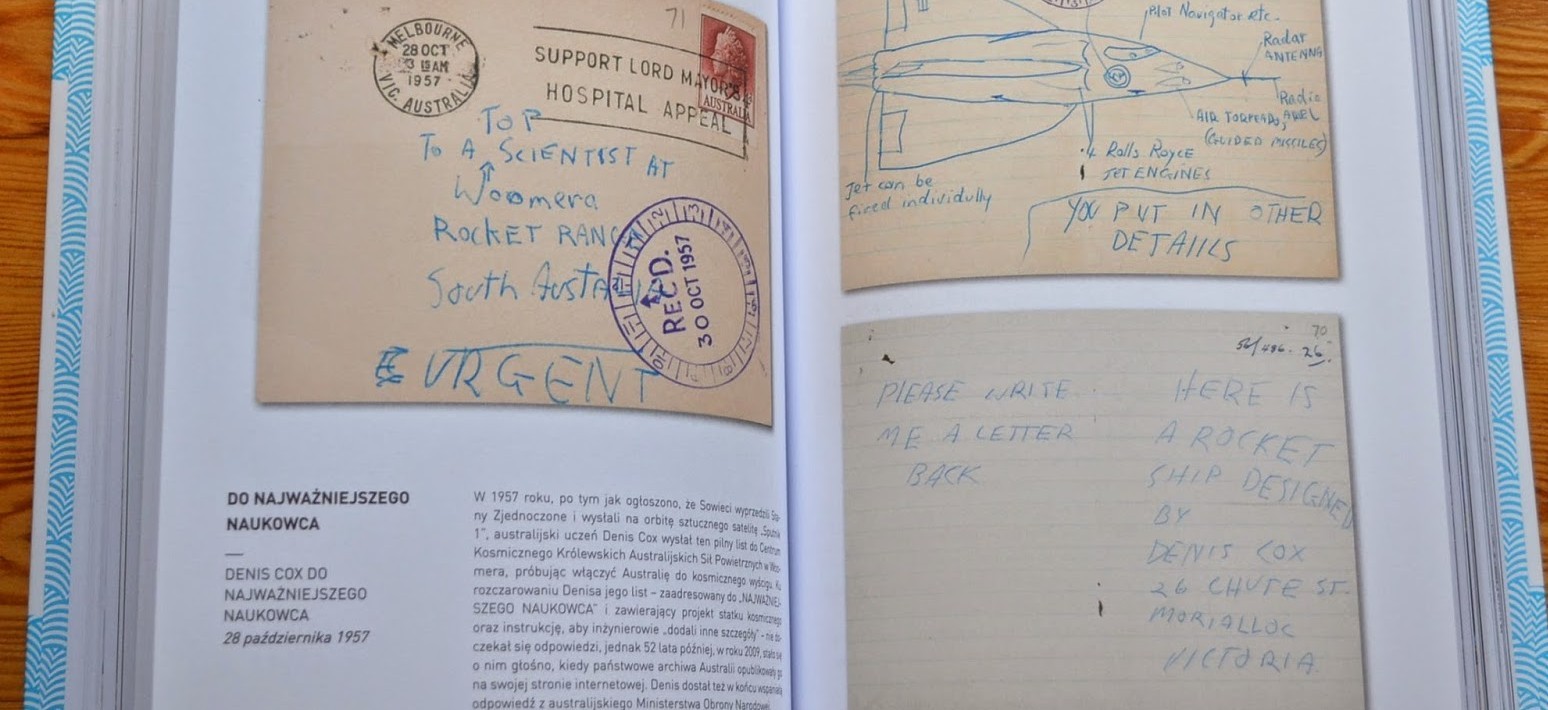 71
MELBOURNE
28 OCT
1957
VIC. AUSTRALIA
SUPPORT LORD MAYOR'S
HOSPITAL APPEAL
AUSTRALIA
TOP
TO A SCIENTIST AT
Woomera
ROCKET RANG
South Aust
REC'D.
30 OCT 1957
URGENT
DO NAJWAŻNIEJSZEGO
NAUKOWCA
DENIS COX DO
NAJWAŻNIEJSZEGO
NAUKOWCA
28 października 1957
W 1957 roku, po tym jak ogłoszono, że Sowieci wyprzedzili
ny Zjednoczone i wysłali na orbitę sztucznego satelitę „Sputnik
1”, australijski uczeń Denis Cox wysłał ten pilny list do Centrum
Kosmicznego Królewskich Australijskich Sił Powietrznych w Woo-
mera, próbując włączyć Australię do kosmicznego wyścigu. Ku
rozczarowaniu Denisa jego list – zaadresowany do „NAJWAŻNIEJ-
SZEGO NAUKOWCA” i zawierający projekt statku kosmicznego
oraz instrukcję, aby inżynierowie „dodali inne szczegóły” – nie do-
czekał się odpowiedzi, jednak 52 lata później, w roku 2009, stało się
o nim głośno, kiedy państwowe archiwa Australii opublikowały go
na swojej stronie internetowej. Denis dostał też w końcu wspaniałą
odpowiedź z australijskiego Ministerstwa Obrony Narodowej.
Pilot Navigator etc.
Radar
ANTENNA
Radio
AIR TORPEADO,
(GUIDED MISSILES)
4 Rolls Royce
JET ENGINES
Jet can be
fired individully
YOU PUT IN OTHER
DETAIILS
70
PLEASE WRITE
ME A LETTER
BACK
HERE IS
A ROCKET
SHIP DESIGNED
BY
DENIS COX
26 CHUTE ST.
MORIALLOC
VICTORIA